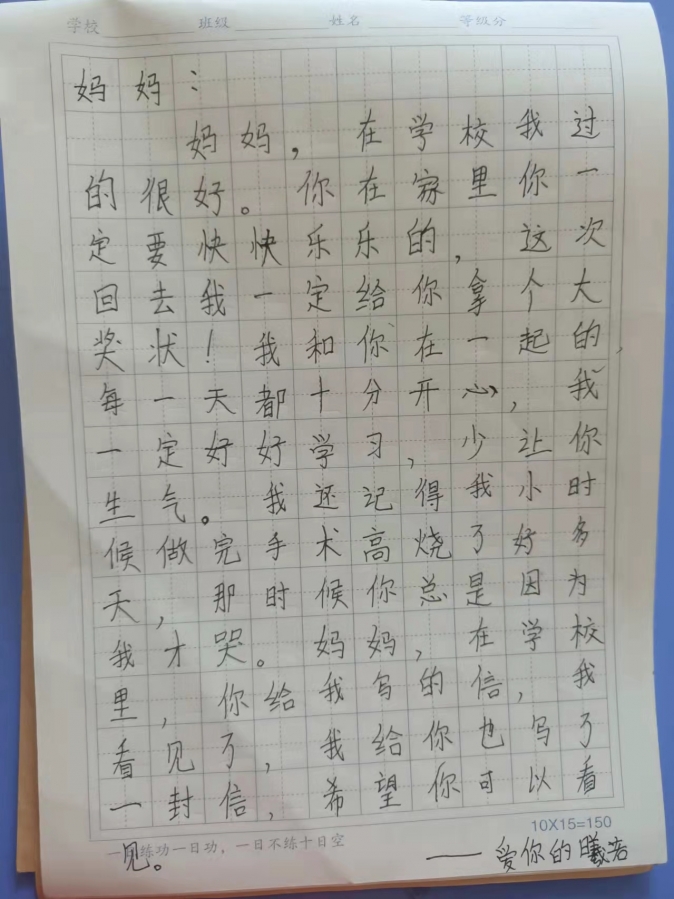 学校 班级 姓名 等级分
妈妈：
妈妈，在学校我过
的很好。你在家里你一
定要快快乐乐的，这次
回去我一定给你拿个大
奖状！我和你在一起的，
每一天都十分开心，我
一定好好学习，少让你
生气。我还记得我小时
候做完手术高烧了好多
天，那时候你总是因为
我才哭。妈妈，在学校
里，你给我写的信，我
看见了，我给你也写了
一封信，希望你可以看
10X15=150
一日练功一日功，一日不练十日空
见。
——爱你的曦若